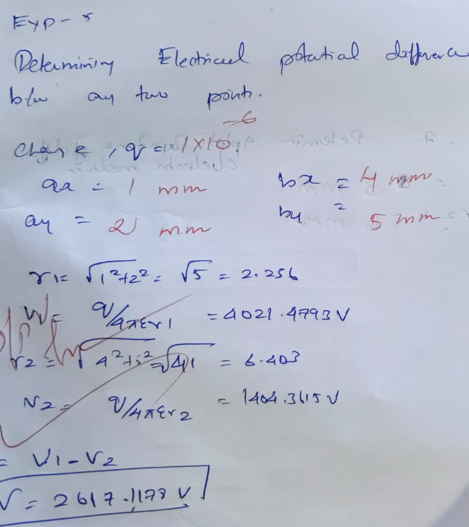 Exp - 5
Determining Electrical potential difference
b/w any two points.
Charge, q = 1×10⁻⁶
ax = 1 mm bx = 4 mm
ay = 2 mm by = 5 mm
r1 = √1²+2² = √5 = 2.256
V1 = q/4πεr1 = 4021.4793 V
r2 = √4²+5² = √41 = 6.403
V2 = q/4πεr2 = 1404.3615 V
= V1 - V2
V = 2617.1178 V